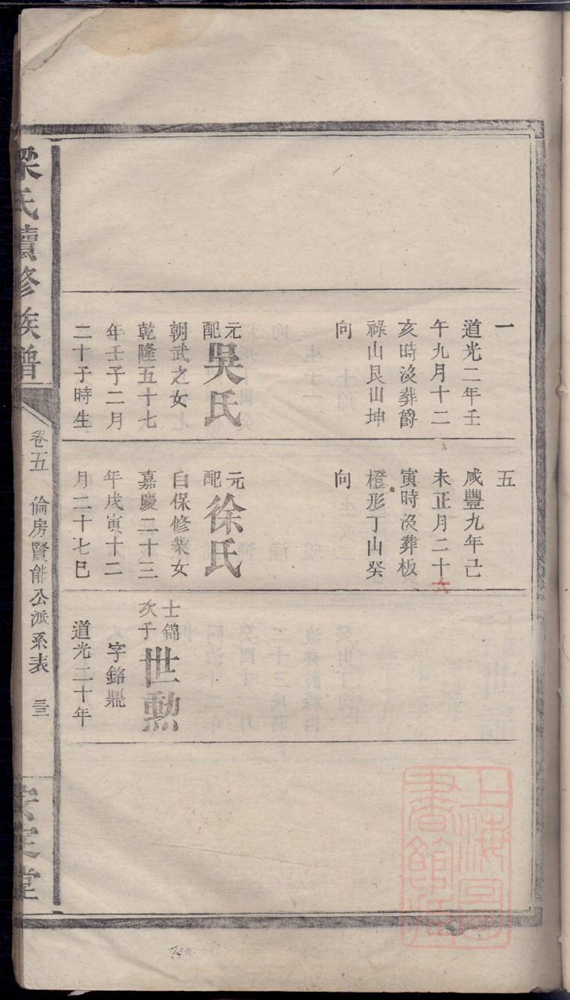 一
道光二年壬
午九月十二
亥時沒葬爵
祿山艮山坤
向
元配吳氏
朝武之女
乾隆五十七
年壬子二月
二十子時生
五
咸豐九年己
未正月二十六
寅時沒葬板
橙形丁山癸
向
元配徐氏
白保修業女
嘉慶二十三
年戊寅十二
月二十七巳
士錦次子世勳
字銘鼎
道光二十年
梁氏續修族譜
卷五
倫房賢能公派系表
三三
安定堂
上海圖書館藏